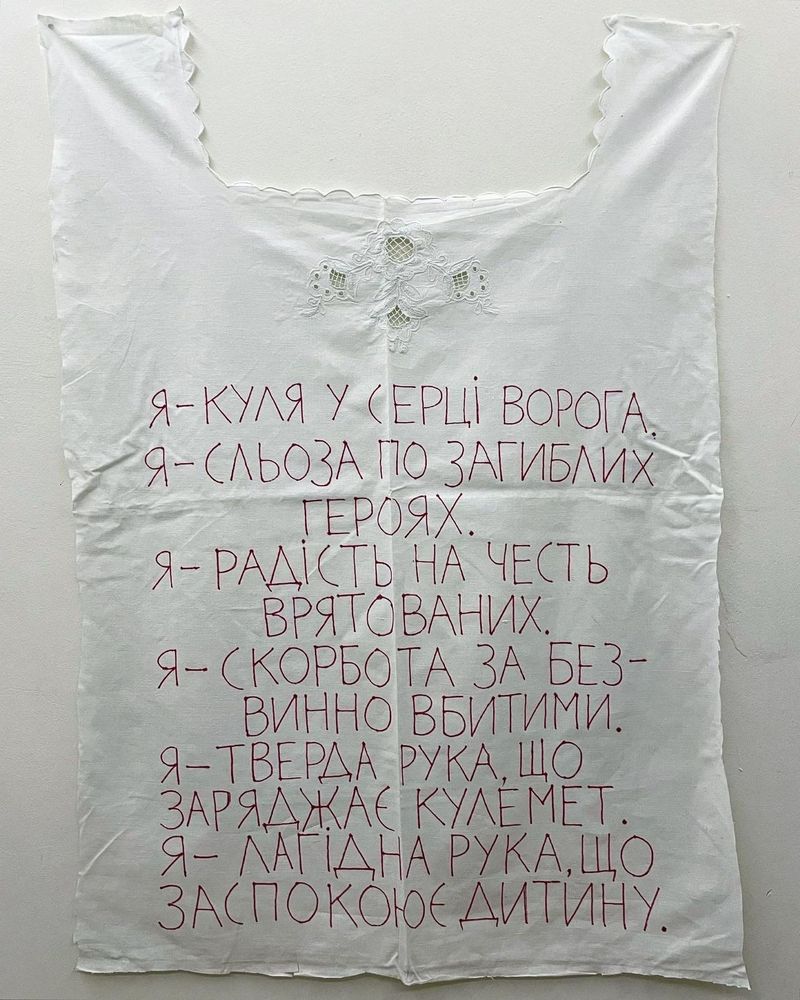 Я-КУЛЯ У СЕРЦІ ВОРОГА.
Я-СЛЬОЗА ПО ЗАГИБЛИХ
ГЕРОЯХ.
Я-РАДІСТЬ НА ЧЕСТЬ
ВРЯТОВАНИХ.
Я-СКОРБОТА ЗА БЕЗ-
ВИННО ВБИТИМИ.
Я-ТВЕРДА РУКА, ЩО
ЗАРЯДЖАЄ КУЛЕМЕТ.
Я- ЛАГІДНА РУКА, ЩО
ЗАСПОКОЮЄ ДИТИНУ.